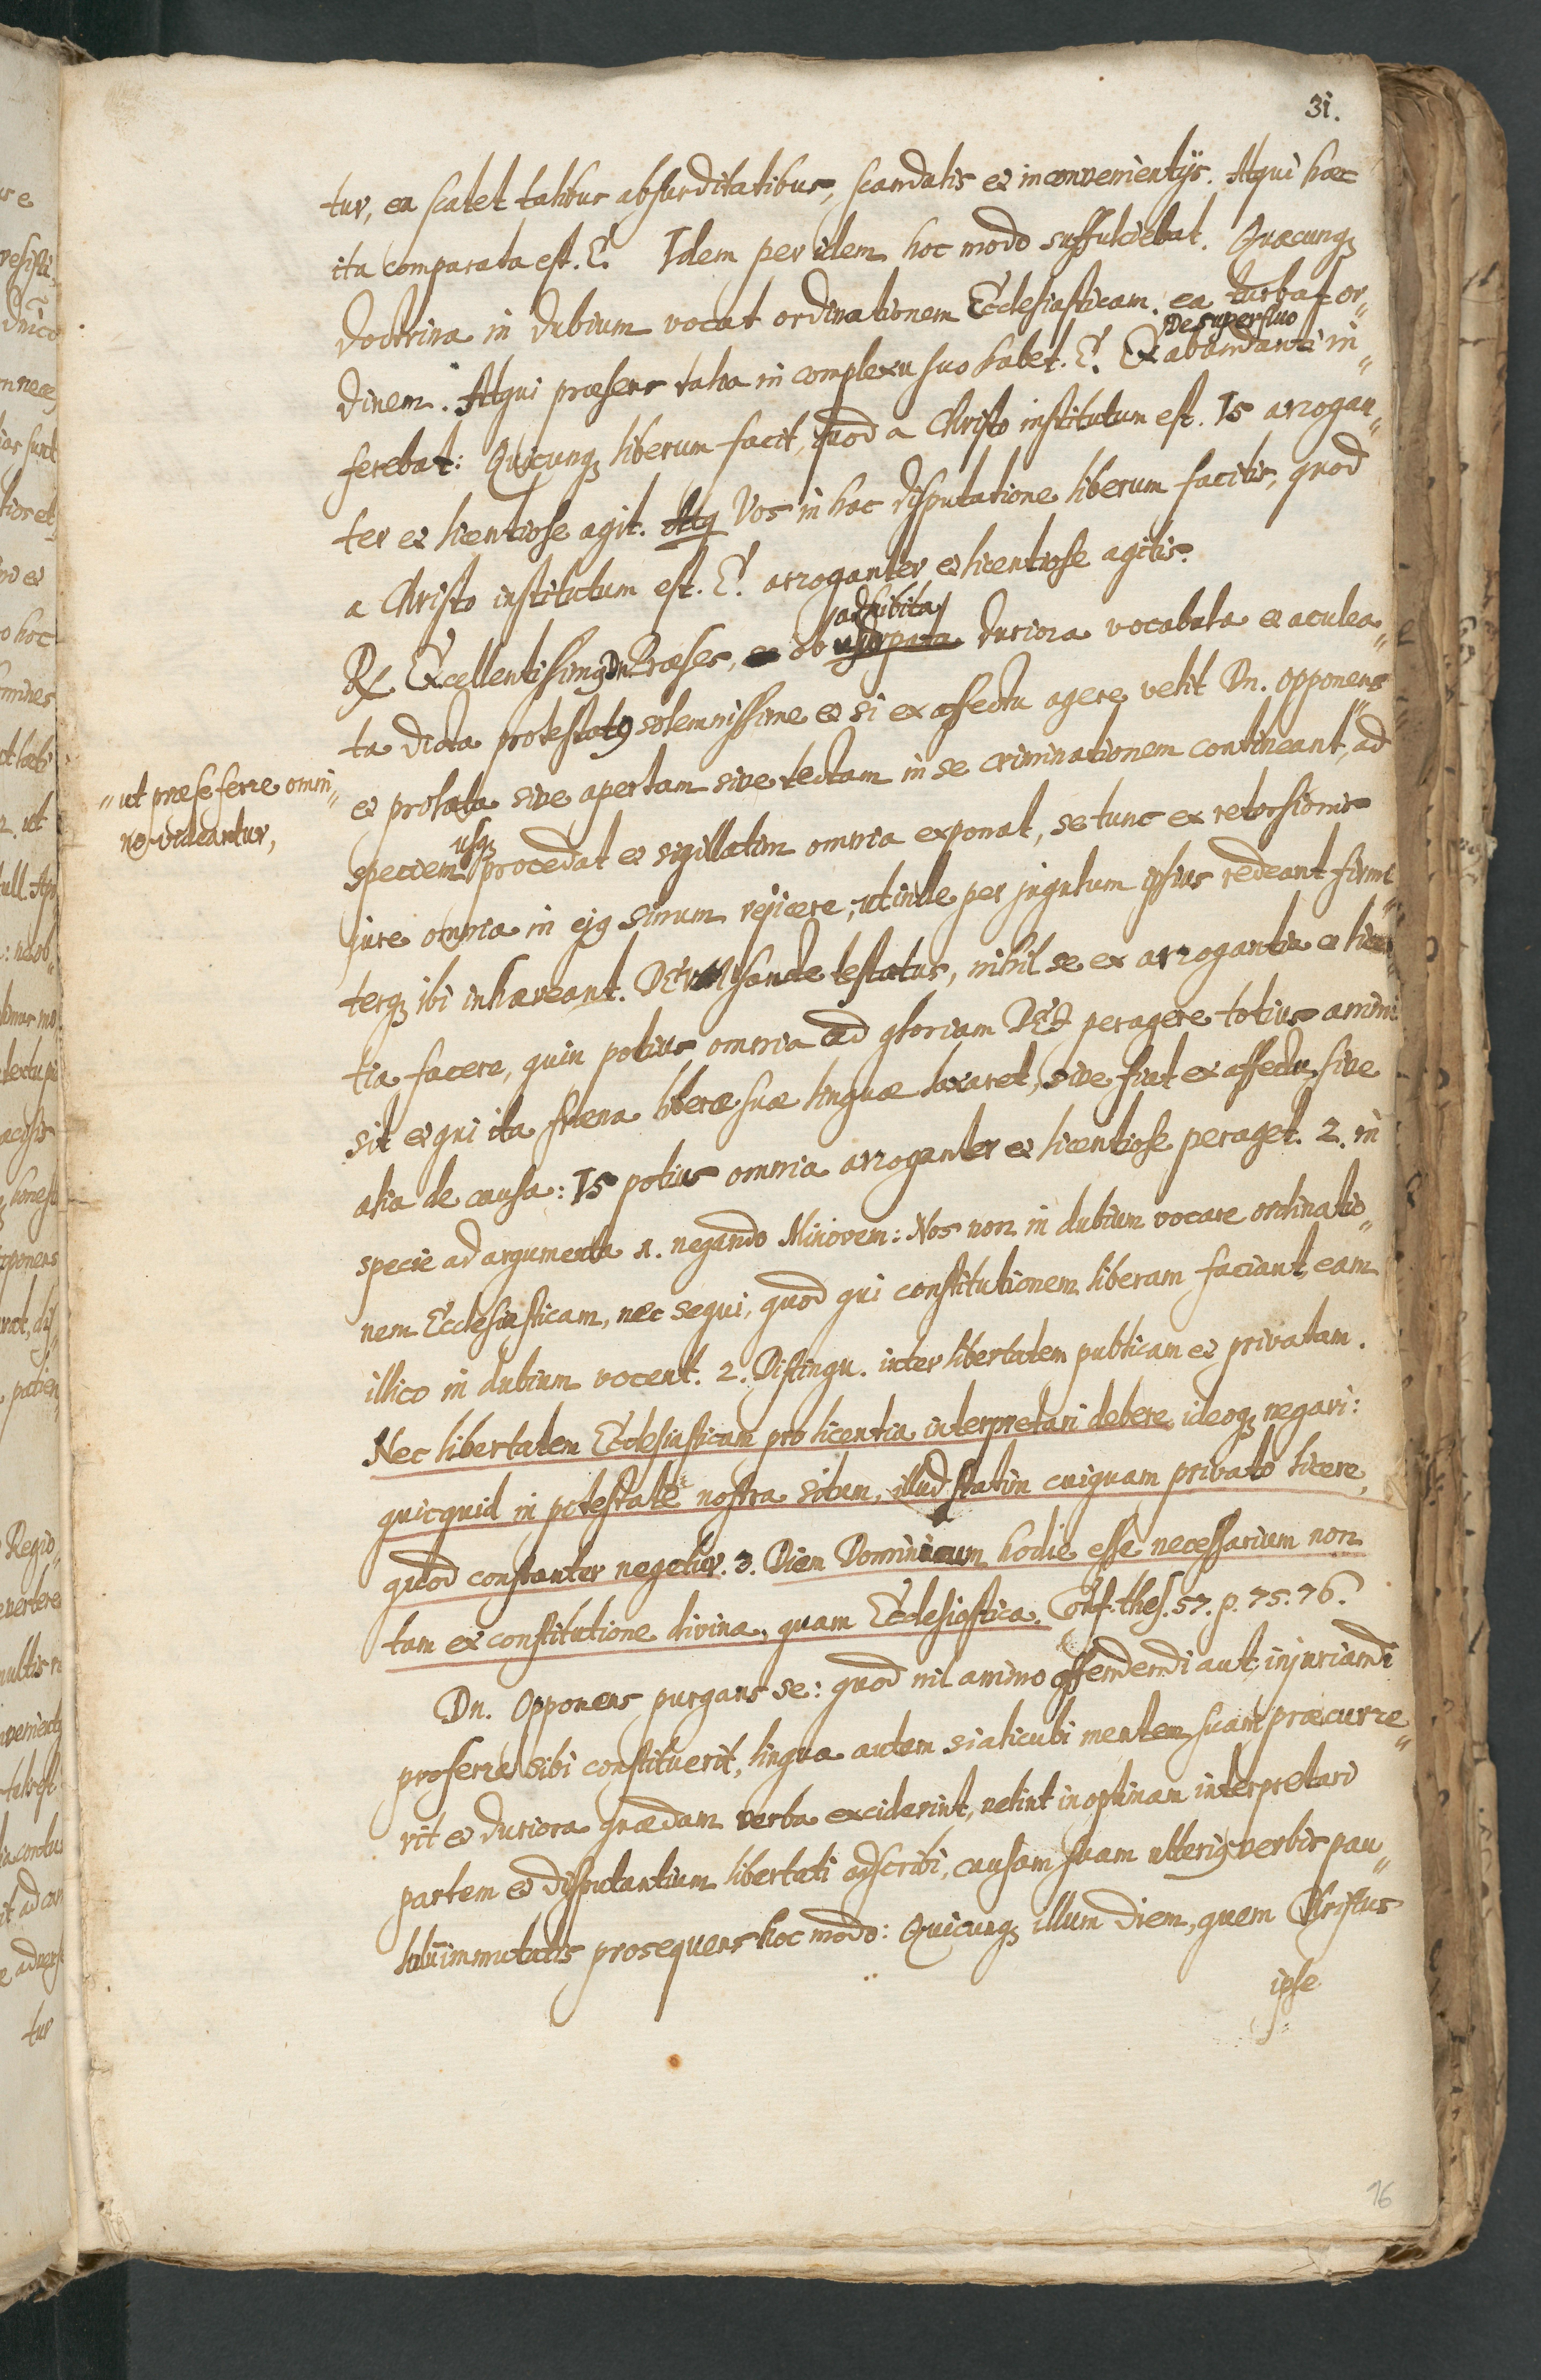 31.
tur, ea scatet talibus absurditatibus, scandalis et inconvenientijs. Atqui haec
ita comparata est. E. Idem per idem hoc modo suffulciebat. Quaecunq;
doctrina in dubium vocat ordinationem Ecclesiasticam, ea turbat or"
De superfluo
dinem. Atqui praesens talia in complexu suo habet. E. Ex abundanti in"
ferebat: Quicunq; liberum facit, quod a Christo institutum est. Is arrogan"
ter et licentiose agit. Atq Vos in hac disputatione liberum facitis, quod
a Christo institutum est. E. arroganter et licentiose agitis.
adhibita
Rx Excellentissimq Dn. Praeses, ob usurpata duriora vocabula et aculea"
ta dicta protestatq solemnissime et si ex affectu agere velit Dn. opponens
"ut prae se ferre omni"
no videantur,
et prolata sive apertam sive tectam in se criminationem contineant, ad
usq;
speciem procedat et sigillatim omnia exponat, se tunc ex retorsionis
jure omnia in ejq sinum rejicere, ut inde per jugulum ipsius redeant firmi"
terq; ibi inhaereant. DEUM sancte testatus, nihil se ex arrogantia et licen
tia facere, quin potius omnia ad gloriam DEI peragere totius animi
sit et qui ita fraena liberae suae linguae laxaret, sive fiat ex affectu sive
alia de causa: Is potius omnia arroganter et licentiose peraget. 2. in
specie ad argumenta 1. negando Minorem: Nos non in dubium vocare ordinatio"
nem Ecclesiasticam, nec sequi, quod qui constitutionem liberam faciant, eam
illico in dubium vocent. 2. Distingu. inter libertatem publicam et privatam.
Nec libertatem Ecclesiasticam pro licentia interpretari debere ideoq; negari:
quicquid in potestate nostra situm, illud statim cuiquam privato licere,
quod constanter negetur. 3. Diem Dominicum hodie esse necessarium non
tam ex constitutione divina, quam Ecclesiastica. Conf. thes. 57. p. 75. 76.
Dn. Opponens purgans se: quod nil animo offendendi aut injuriandi
proferre sibi constituerit, lingua autem si alicubi mentem suam praecurre"
rit et duriora quaedam verba exciderint, velint in optimam interpretari
partem et disputantium libertati adscribi, causam suam ulteriq verbis pau"
lulum immutatis prosequens hoc modo: Quicunq; illum diem, quem Christus
ipse
76